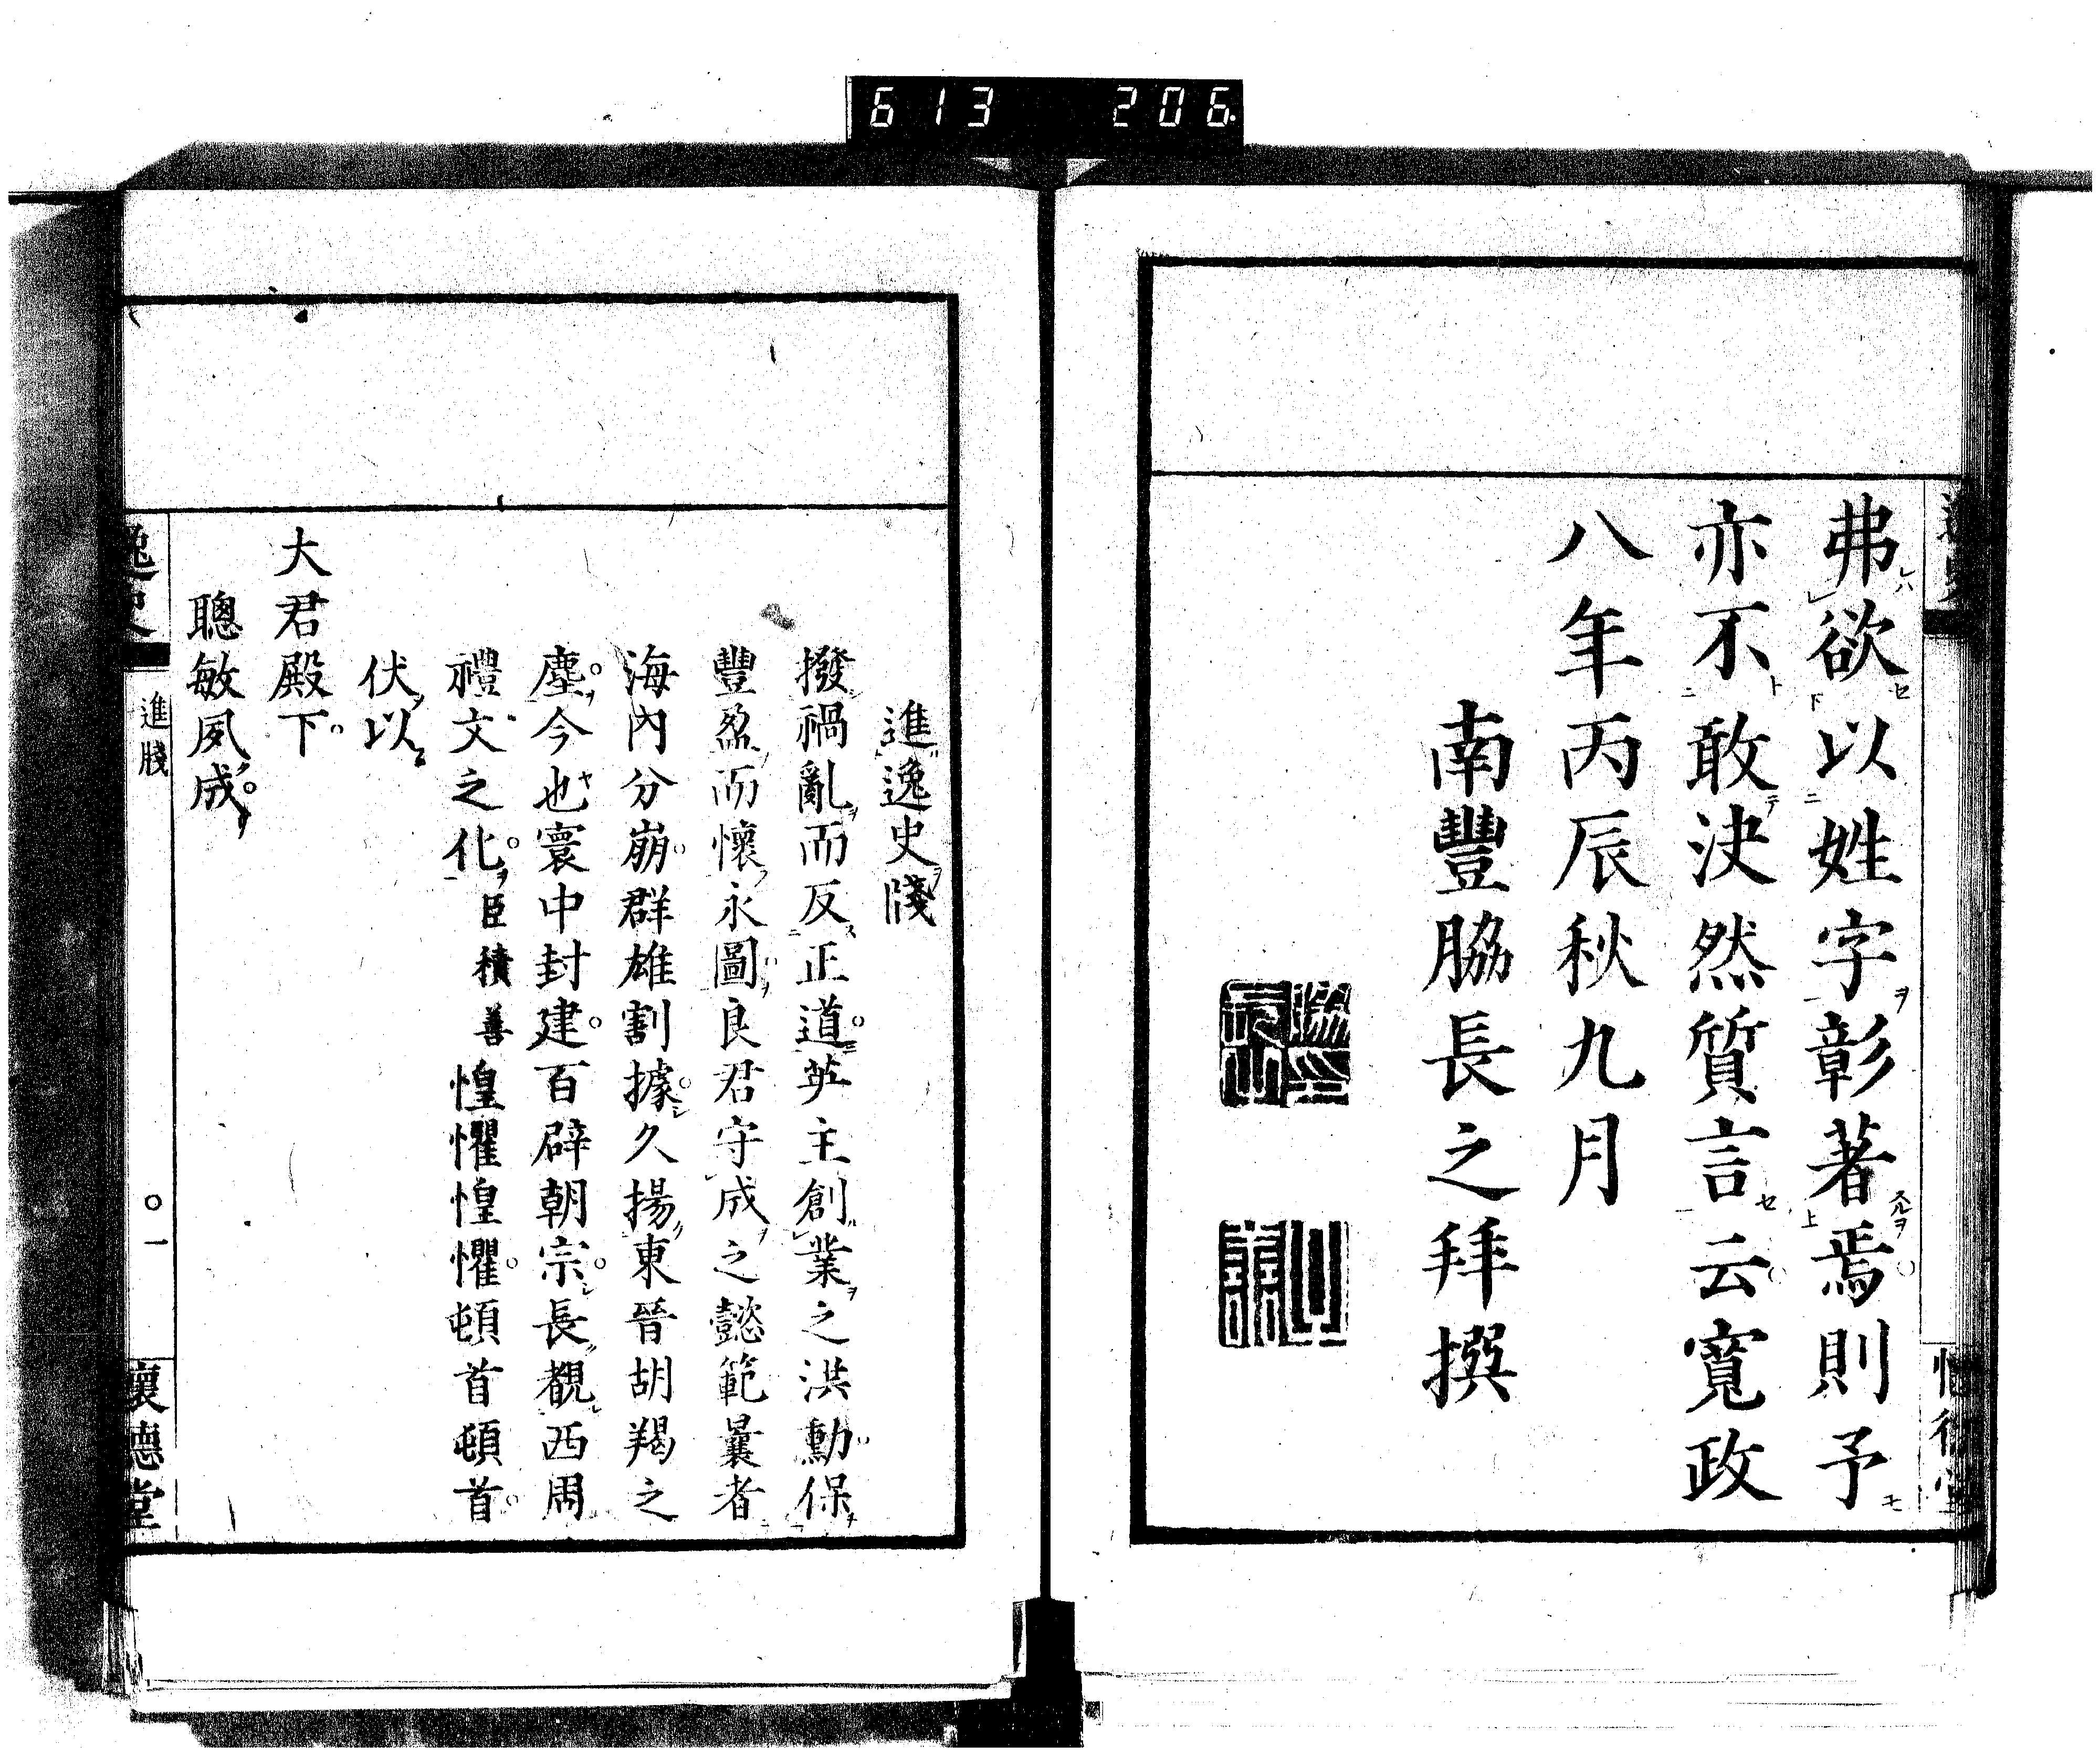 613 206
弗欲以姓字彰著焉則予
亦不敢決然質言云寛政
八年丙辰秋九月
南豐脇長之拜撰
進逸史牋
撥禍亂而反正道英主創業之洪勳保
豐盈而懷永圖良君守成之懿範曩者
海內分崩群雄割據久揚東晉胡羯之
塵今也寰中封建百辟朝宗長覩西周
禮文之化臣積善惶懼惶懼頓首頓首
伏以
大君殿下
聰敏夙成
逸史
進牋
〇一
懷德堂